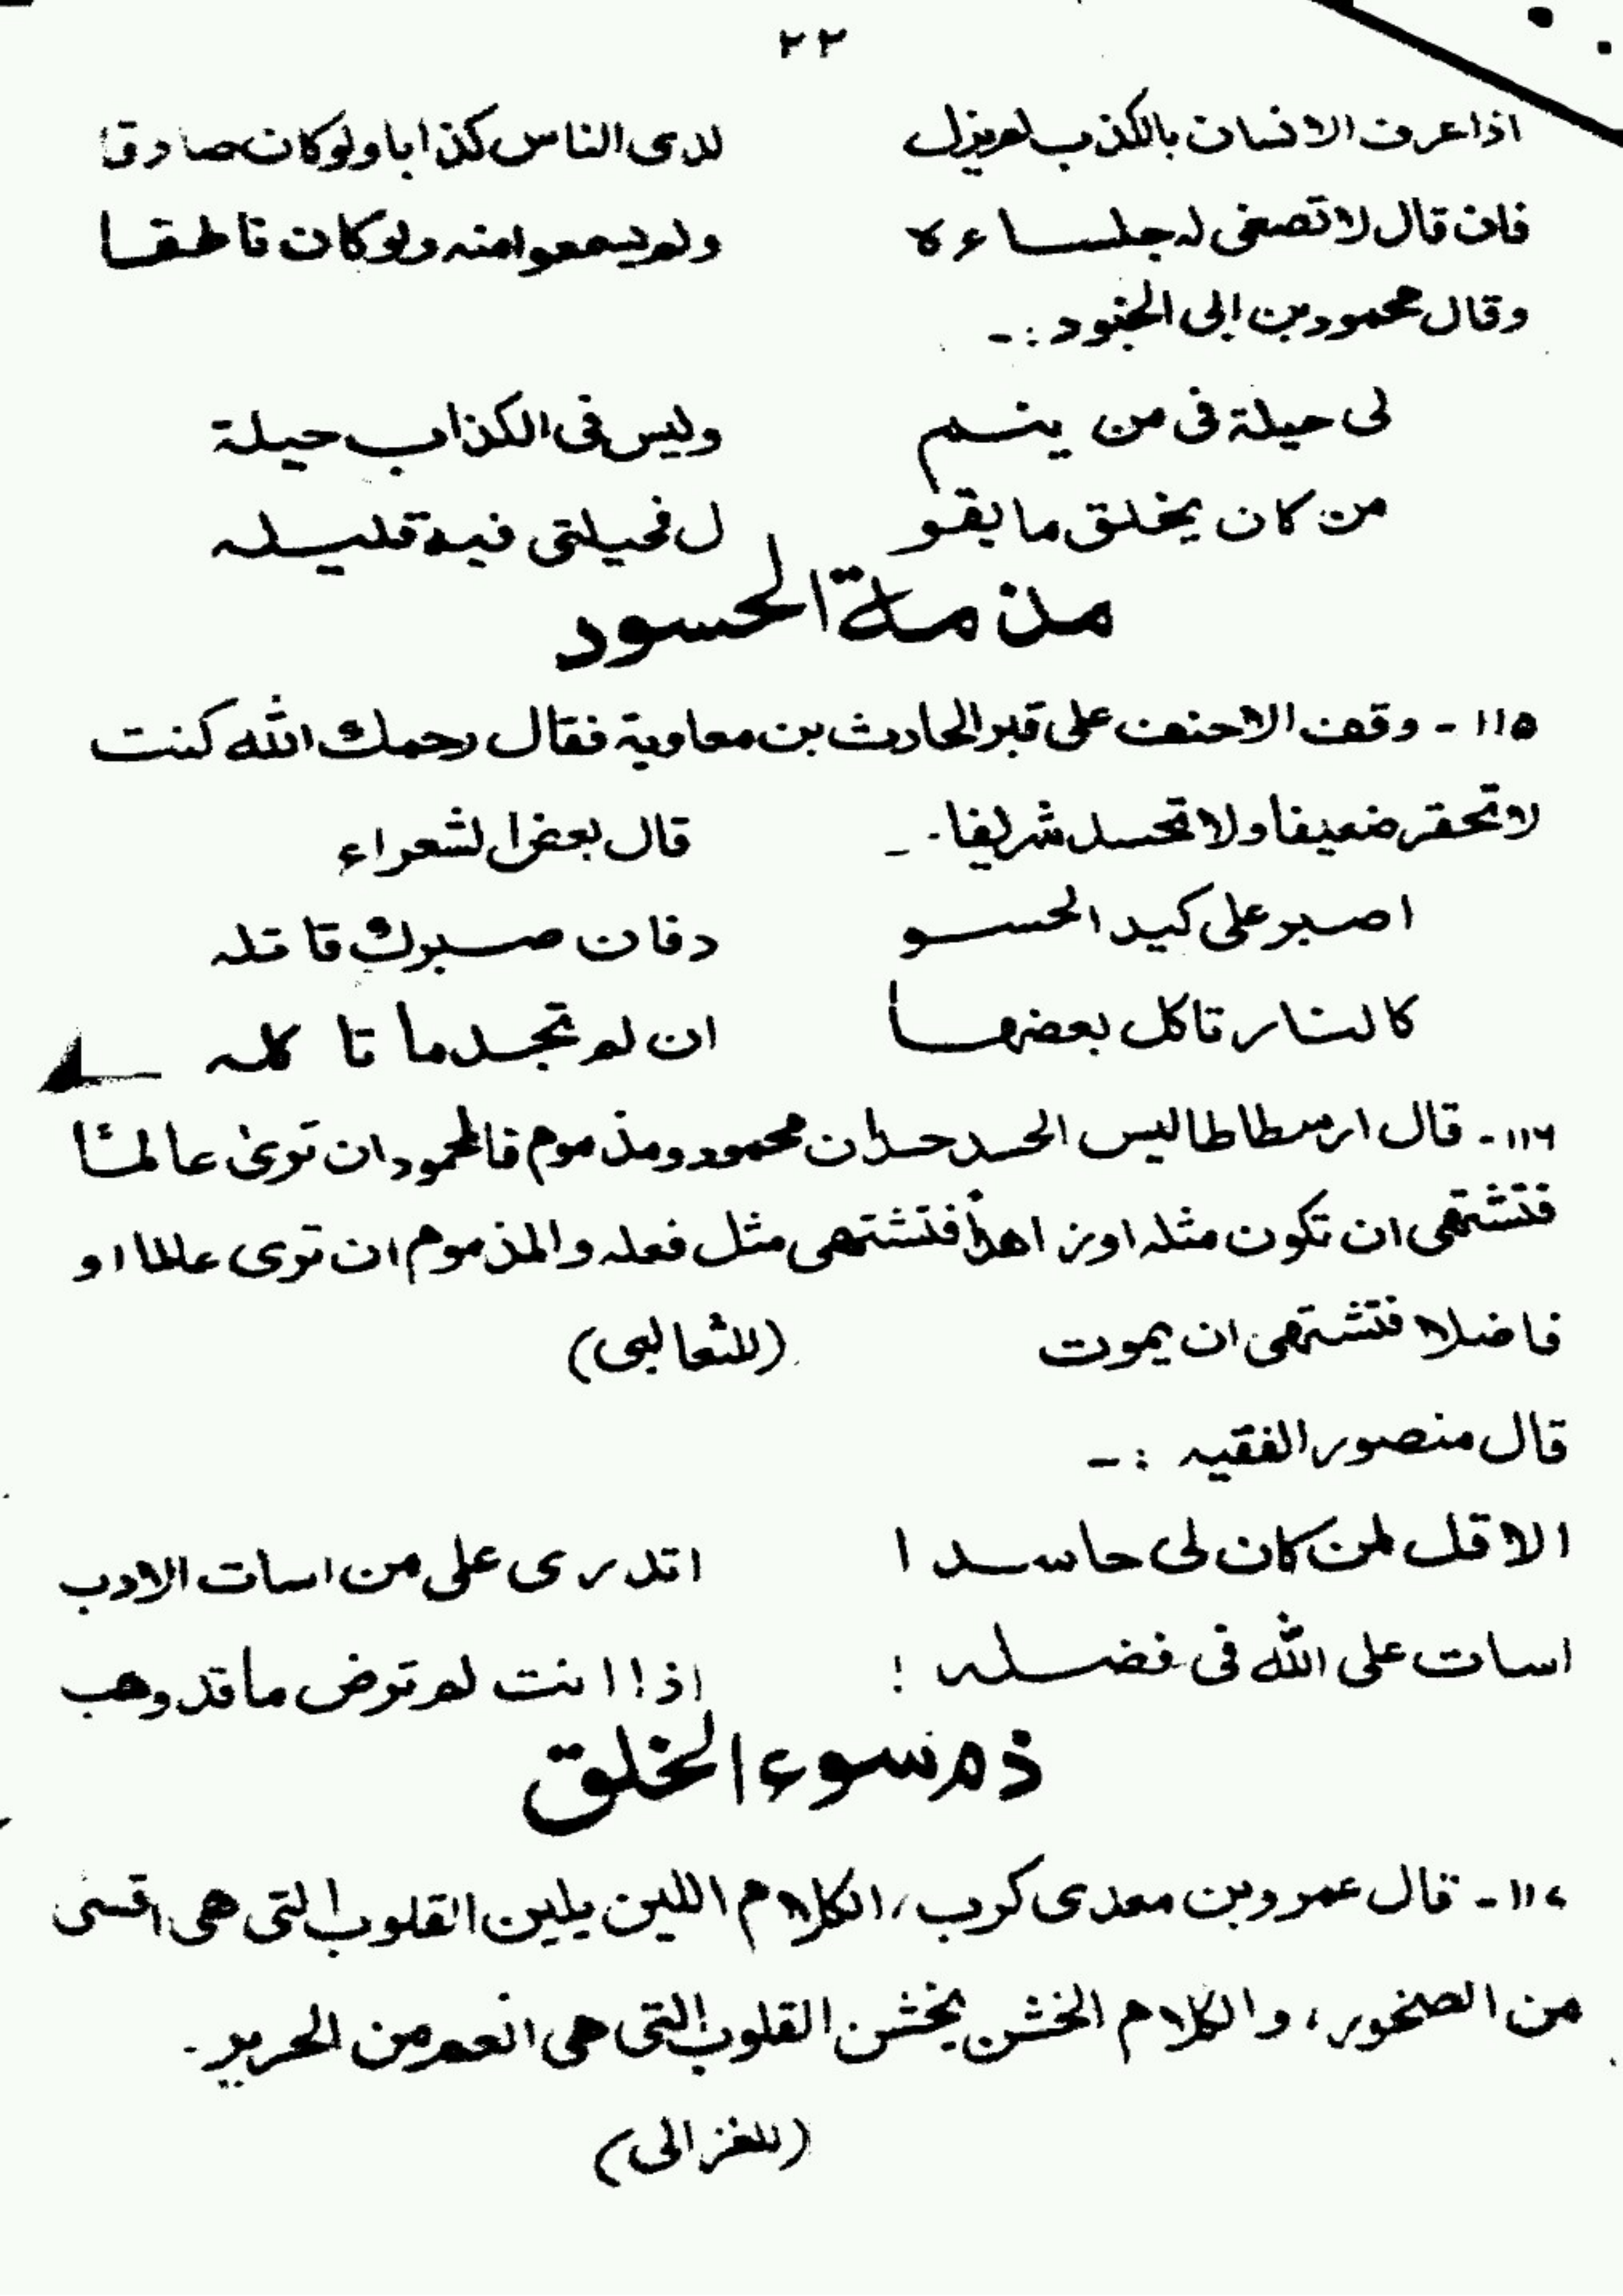 ٢٢
اذا عرف الانسان بالكذب لم يزل لدى الناس كذابا ولو كان صادقا
فان قال لا تصغى له جلساءه ولم يسمعوا منه ولو كان ناطقا
وقال محمود بن ابى الجنود :-
لى حيلة فى من ينم وليس فى الكذاب حيلة
من كان يخلق ما يقو ل فحيلتى فيه قليله
مذمة الحسود
١١٥ - وقف الاحنف على قبر الحارث بن معاوية فقال رحمك الله كنت
لا تحقر ضعيفا ولا تحسد شريفا - قال بعض الشعراء
اصبر على كيد الحسو د فان صبرك قاتله
كالنار تاكل بعضها ان لم تجد ما تاكله
١١٦ - قال ارسطاطاليس الحسد حسدان محمود ومذموم فالمحمود ان ترى عالمًا
فتشتهى ان تكون مثله او زاهدًا فتشتهى مثل فعله والمذموم ان ترى عالما او
فاضلا فتشتهى ان يموت (للثعالبى)
قال منصور الفقيه :-
الا قل لمن كان لى حاسدا اتدرى على من اسات الادب
اسات على الله فى فضله ! اذا انت لم ترض ما قد وهب
ذم سوء الخلق
١١٧ - قال عمرو بن معدى كرب، الكلام اللين يلين القلوب التى هى اقسى
من الصخور، والكلام الخشن يخشن القلوب التى هى انعم من الحرير -
(للغزالى)